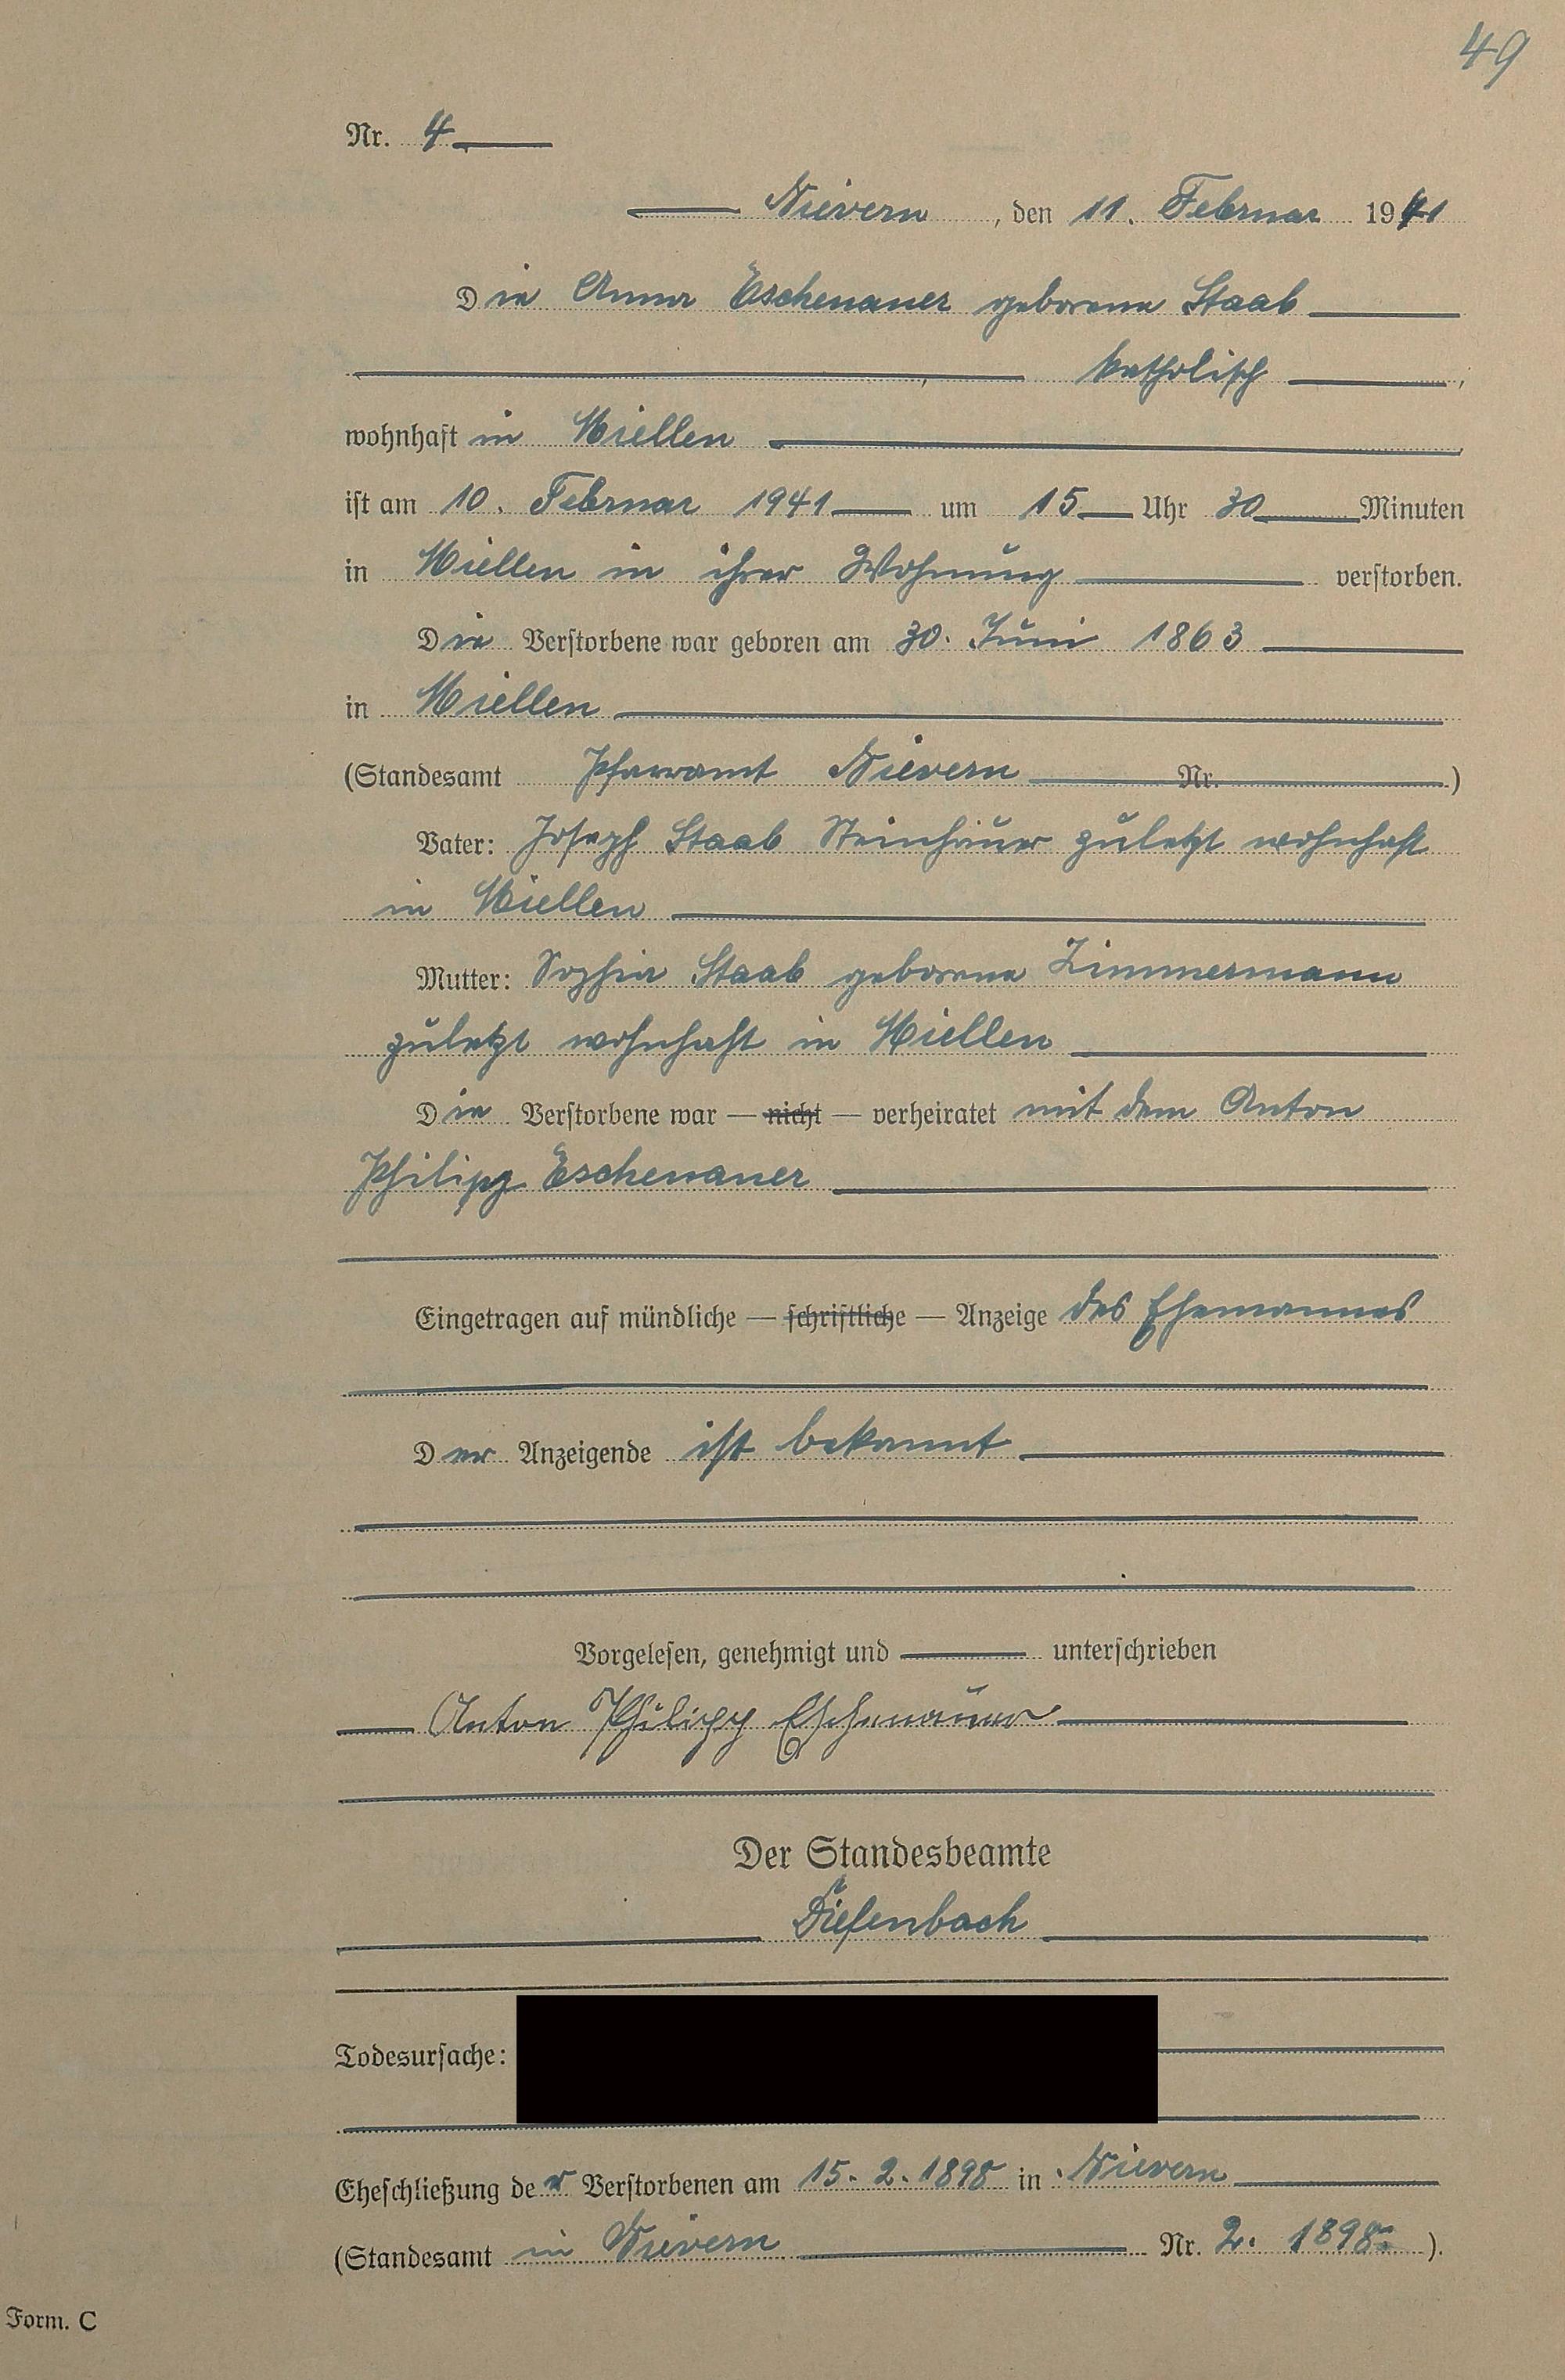 49
Nr. 4
Nievern, den 11. Februar 1941
Die Anna Eschenauer geborene Staab
, katholisch,
wohnhaft in Miellen
ist am 10. Februar 1941 um 15 Uhr 30 Minuten
in Miellen in ihrer Wohnung verstorben.
Die Verstorbene war geboren am 30. Juni 1863
in Miellen
(Standesamt Pfarramt Nievern Nr. )
Vater: Joseph Staab Steinhauer zuletzt wohnhaft
in Miellen
Mutter: Sophia Staab geborene Zimmermann
zuletzt wohnhaft in Miellen
Die Verstorbene war — nicht — verheiratet mit dem Anton
Philipp Eschenauer
Eingetragen auf mündliche — schriftliche — Anzeige des Ehemannes
Der Anzeigende ist bekannt
Vorgelesen, genehmigt und unterschrieben
Anton Philipp Eschenauer
Der Standesbeamte
Diefenbach
Todesursache:
Eheschließung der Verstorbenen am 15. 2. 1898 in Nievern
(Standesamt in Nievern Nr. 2. 1898.)
Form. C